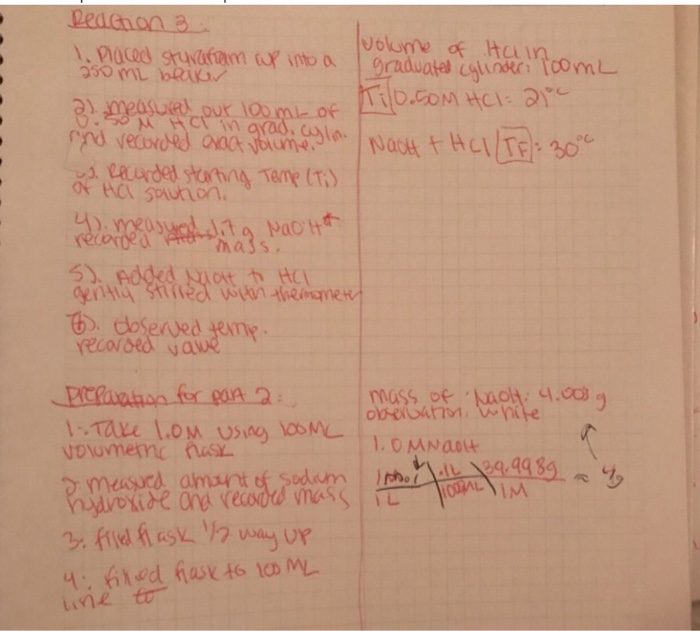 Reaction 3:
1. Placed styrofoam cup into a
250 mL beaker
2). measured out 100mL of
0.50 M HCl in grad. cyln.
and recorded exact volume.
3. Recorded starting Temp (Ti)
of HCl solution.
4). measured NaOH
recorded mass.
5). Added NaOH to HCl
gently stirred with thermometer
6). Observed temp.
recorded value
Volume of HCl in
graduated cylinder: 100mL
Ti 0.50M HCl = 21°C
NaOH + HCl TF = 30°C
Preparation for part 2:
1. Take 1.0M using 100mL
volumetric flask
2. measured amount of sodium
hydroxide and recorded mass
3. filled flask 1/2 way up
4. filled flask to 100 mL
line
mass of NaOH: 4.008g
observation: White
1.0M NaOH
1mol .1L 39.998g ≈ 4g
1L 100mL 1M